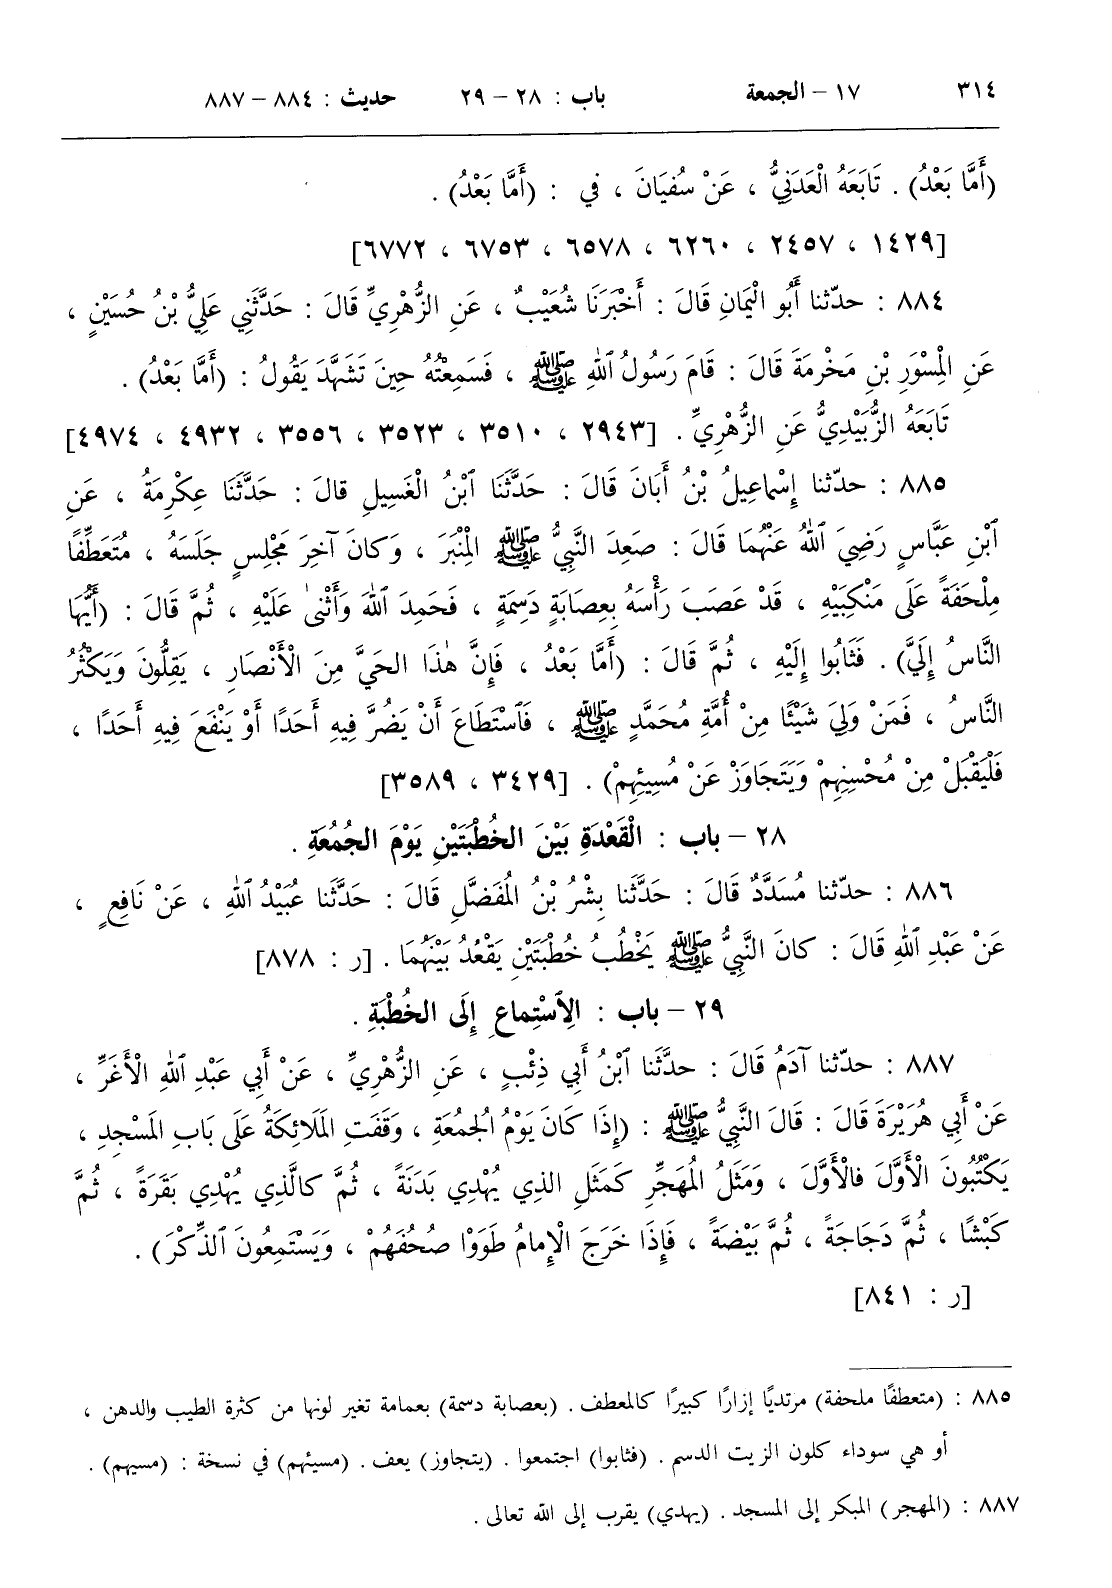 ٣١٤ ١٧ – الجمعة باب : ٢٨ – ٢٩ حديث : ٨٨٤ – ٨٨٧
(أَمَّا بَعْدُ) . تَابَعَهُ الْعَدَنِيُّ ، عَنْ سُفْيَانَ ، في : (أَمَّا بَعْدُ) .
[١٤٢٩ ، ٢٤٥٧ ، ٦٢٦٠ ، ٦٥٧٨ ، ٦٧٥٣ ، ٦٧٧٢]
٨٨٤ : حدّثنا أَبُو الْيَمَانِ قَالَ : أَخْبَرَنَا شُعَيْبٌ ، عَنِ الزُّهْرِيِّ قَالَ : حَدَّثَنِي عَلِيُّ بْنُ حُسَيْنٍ ،
عَنِ الْمِسْوَرِ بْنِ مَخْرَمَةَ قَالَ : قَامَ رَسُولُ ٱللهِ ﷺ ، فَسَمِعْتُهُ حِينَ تَشَهَّدَ يَقُولُ : (أَمَّا بَعْدُ) .
تَابَعَهُ الزُّبَيْدِيُّ عَنِ الزُّهْرِيِّ . [٢٩٤٣ ، ٣٥١٠ ، ٣٥٢٣ ، ٣٥٥٦ ، ٤٩٣٢ ، ٤٩٧٤]
٨٨٥ : حدّثنا إِسْماعِيلُ بْنُ أَبَانَ قَالَ : حَدَّثَنَا ٱبْنُ الْغَسِيلِ قالَ : حَدَّثَنَا عِكْرِمَةُ ، عَنِ
ٱبْنِ عَبَّاسٍ رَضِيَ ٱللهُ عَنْهُمَا قَالَ : صَعِدَ النَّبِيُّ ﷺ الْمِنْبَرَ ، وَكانَ آخِرَ مَجْلِسٍ جَلَسَهُ ، مُتَعَطِّفًا
مِلْحَفَةً عَلَى مَنْكِبَيْهِ ، قَدْ عَصَبَ رَأْسَهُ بِعِصَابَةٍ دَسِمَةٍ ، فَحَمِدَ ٱللهَ وَأَثْنىٰ عَلَيْهِ ، ثُمَّ قَالَ : (أَيُّهَا
النَّاسُ إِلَيَّ) . فَثَابُوا إِلَيْهِ ، ثُمَّ قَالَ : (أَمَّا بَعْدُ ، فَإِنَّ هٰذَا الحَيَّ مِنَ الْأَنْصَارِ ، يَقِلُّونَ وَيَكْثُرُ
النَّاسُ ، فَمَنْ وَلِيَ شَيْئًا مِنْ أُمَّةِ مُحَمَّدٍ ﷺ ، فَٱسْتَطَاعَ أَنْ يَضُرَّ فِيهِ أَحَدًا أَوْ يَنْفَعَ فِيهِ أَحَدًا ،
فَلْيَقْبَلْ مِنْ مُحْسِنِهِمْ وَيَتَجَاوَزْ عَنْ مُسِيئِهِمْ) . [٣٤٢٩ ، ٣٥٨٩]
٢٨ – باب : الْقَعْدَةِ بَيْنَ الخُطْبَتَيْنِ يَوْمَ الجُمُعَةِ .
٨٨٦ : حدّثنا مُسَدَّدٌ قَالَ : حَدَّثَنا بِشْرُ بْنُ الْمُفَضَّلِ قَالَ : حَدَّثَنا عُبَيْدُ ٱللهِ ، عَنْ نَافِعٍ ،
عَنْ عَبْدِ ٱللهِ قَالَ : كانَ النَّبِيُّ ﷺ يَخْطُبُ خُطْبَتَيْنِ يَقْعُدُ بَيْنَهُمَا . [ر : ٨٧٨]
٢٩ – باب : الِٱسْتِماعِ إِلَى الخُطْبَةِ .
٨٨٧ : حدّثنا آدَمُ قَالَ : حدَّثَنا ٱبْنُ أَبِي ذِئْبٍ ، عَنِ الزُّهْرِيِّ ، عَنْ أَبِي عَبْدِ ٱللهِ الْأَغَرِّ ،
عَنْ أَبِي هُرَيْرَةَ قَالَ : قَالَ النَّبِيُّ ﷺ : (إِذَا كَانَ يَوْمُ الجُمُعَةِ ، وَقَفَتِ المَلَائِكَةُ عَلَى بَابِ المَسْجِدِ ،
يَكْتُبُونَ الْأَوَّلَ فالْأَوَّلَ ، وَمَثَلُ الْمُهَجِّرِ كَمَثَلِ الذِي يُهْدِي بَدَنَةً ، ثُمَّ كالَّذِي يُهْدِي بَقَرَةً ، ثُمَّ
كَبْشًا ، ثُمَّ دَجَاجَةً ، ثُمَّ بَيْضَةً ، فَإِذَا خَرَجَ الْإِمامُ طَوَوْا صُحُفَهُمْ ، وَيَسْتَمِعُونَ ٱلذِّكْرَ) .
[ر : ٨٤١]
٨٨٥ : (متعطفًا ملحفة) مرتديًا إزارًا كبيرًا كالمعطف . (بعصابة دسمة) بعمامة تغير لونها من كثرة الطيب والدهن ،
أو هي سوداء كلون الزيت الدسم . (فثابوا) اجتمعوا . (يتجاوز) يعف . (مسيئهم) في نسخة : (مسيهم) .
٨٨٧ : (المهجر) المبكر إلى المسجد . (يهدي) يقرب إلى الله تعالى .